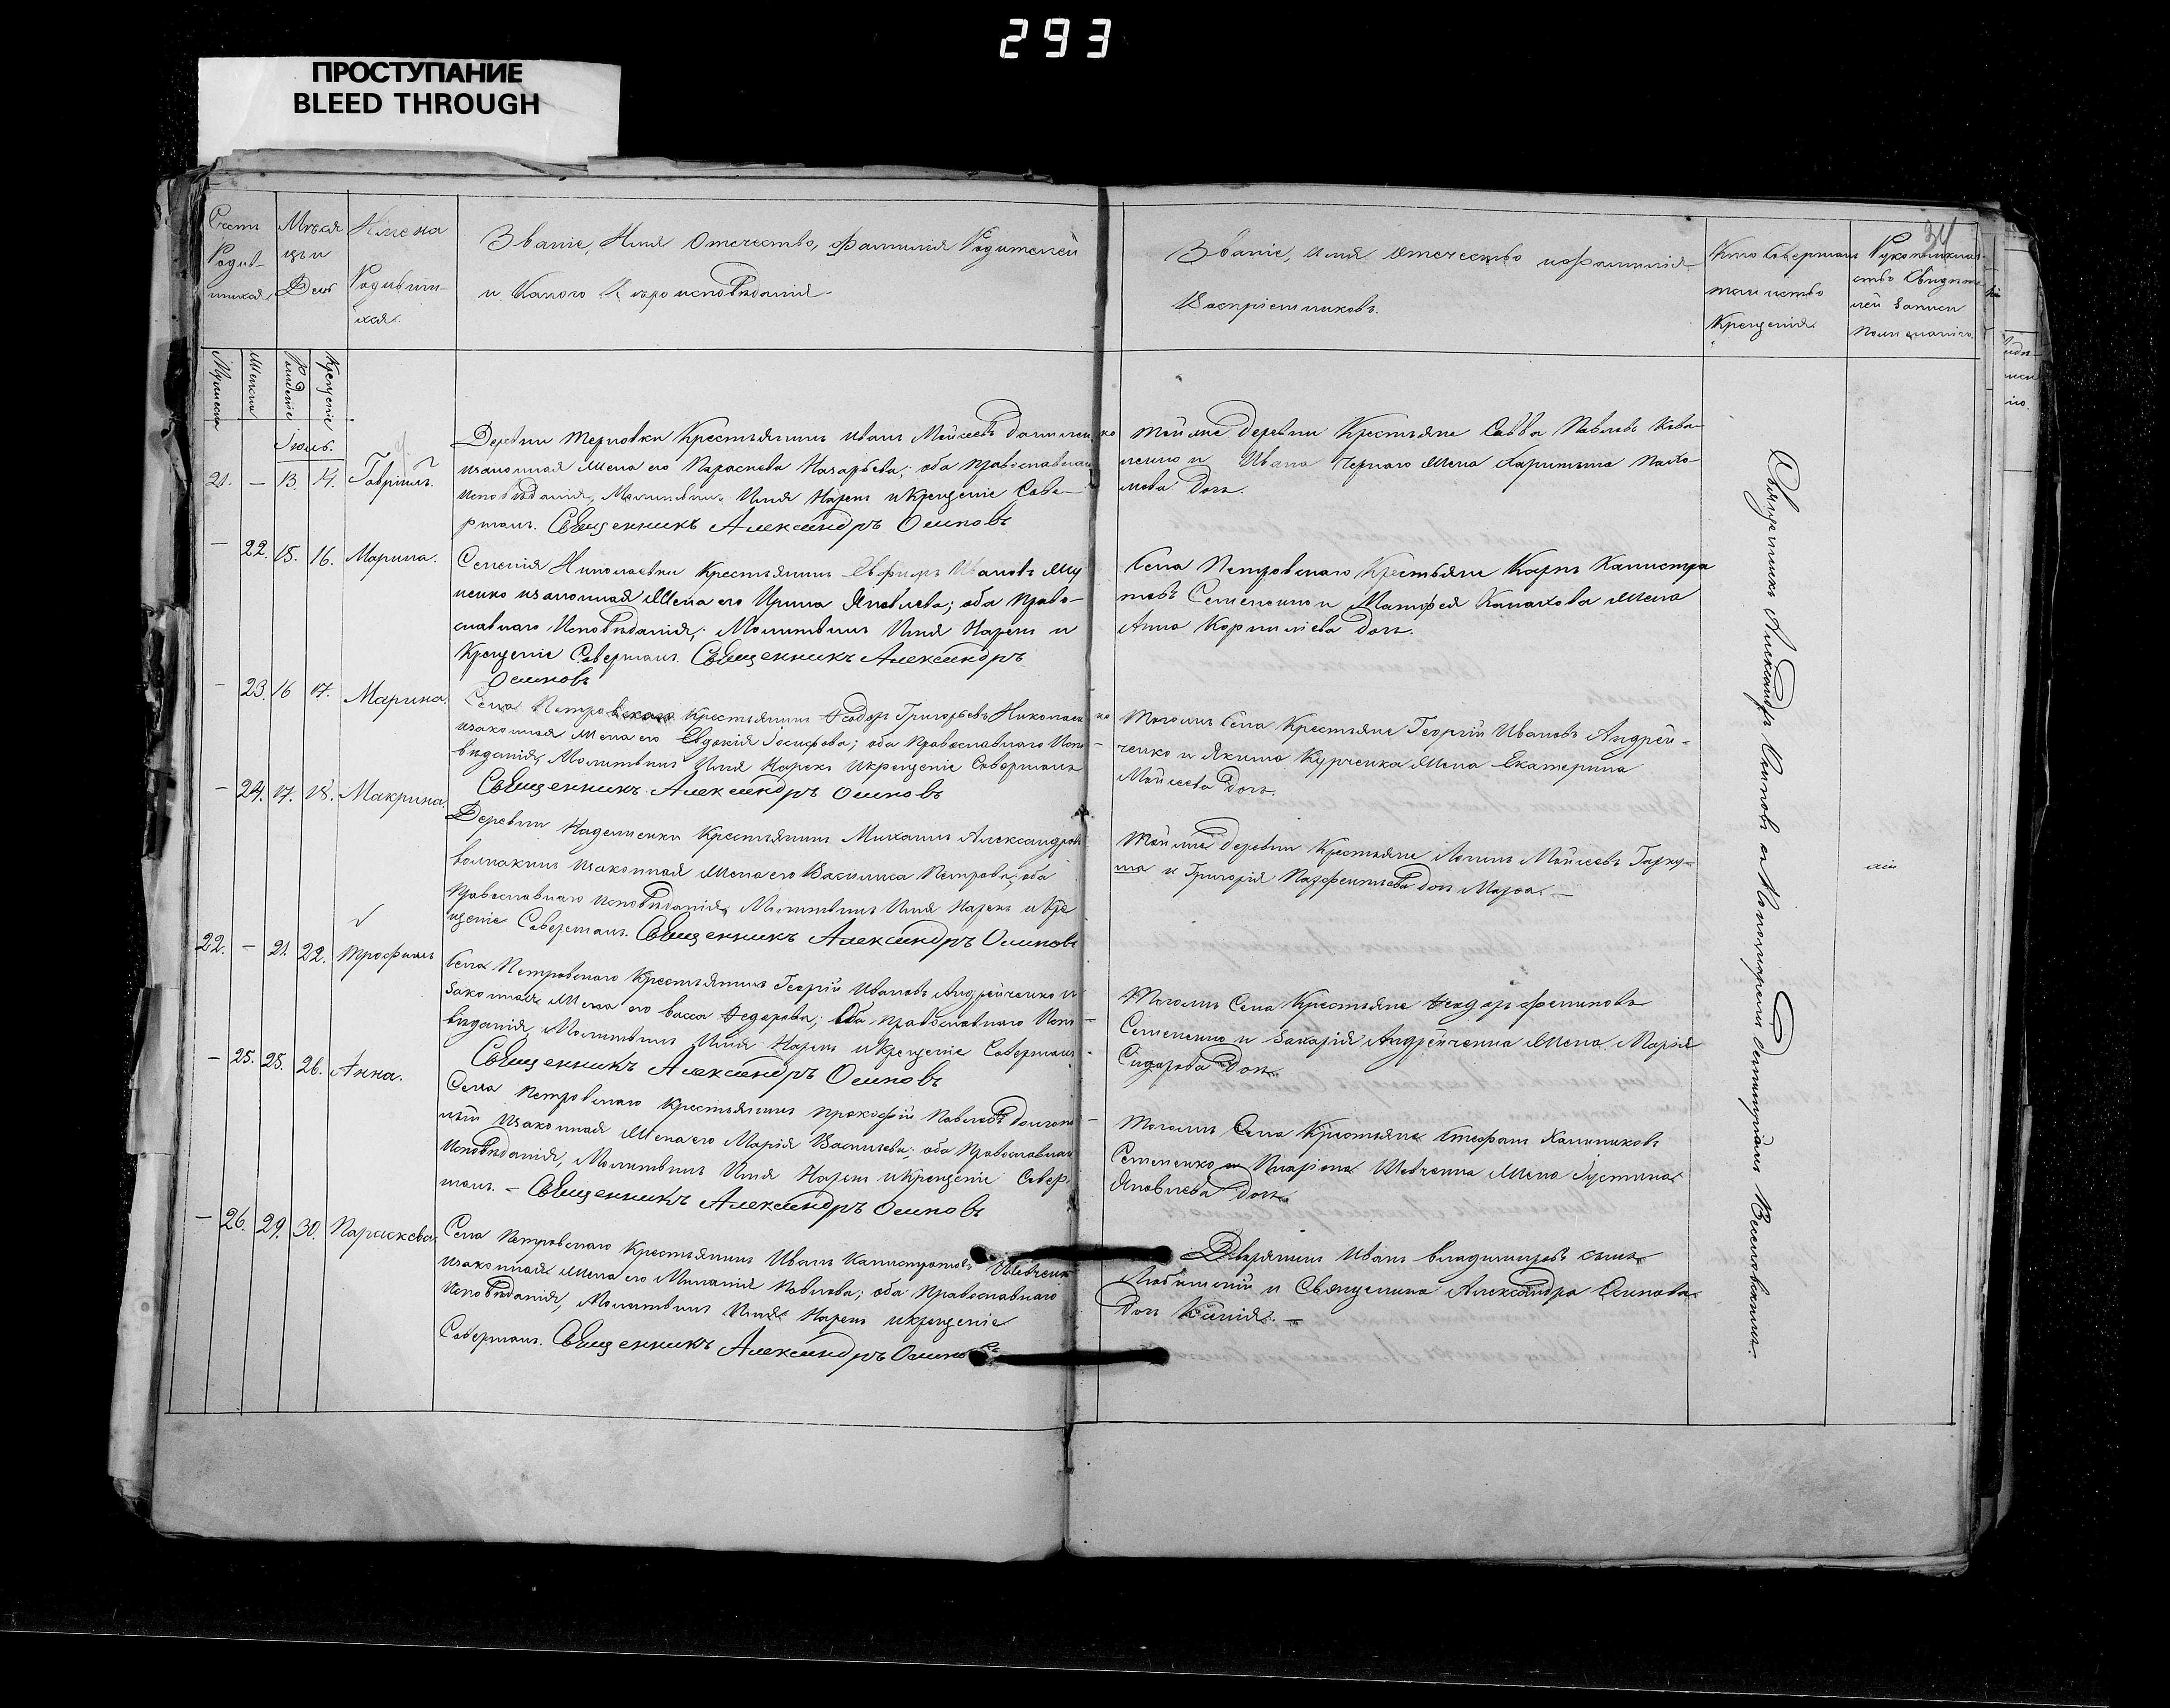 293
ПРОСТУПАНИЕ
BLEED THROUGH
34
Счетъ Родив-шихся
Мѣсяцъ и День
Имена Родивших-ся.
Званіе, Имя Отечество, Фамилія Родителей
и Какого Вѣроисповѣданія
Званіе, Имя Отечество и Фамилія
Воспріемниковъ.
Кто Совершалъ
таинство
Крещенія
Мужеска
Женска
Рожденіе
Крещеніе
Іюль.
21. – 13. 14. Гавріилъ.
Деревни Терновки Крестьянинъ Иванъ Моѵсеевъ Даниленко
изаконная Жена его Параскева Назарьева; оба Православнаго
Исповѣданія, Молитвилъ Имя Нарекъ и Крещеніе Сове-
ршалъ. Священникъ Александръ Осиповъ
Той же деревни Крестьяне Савва Павловъ Кова-
ленко и Ивана Чернаго Жена Харитина Пахо-
мова Дочь.
– 22. 15. 16. Марина.
Николаевки Крестьянинъ Евфимъ Ивановъ
ненко изаконная Жена его Ирина Яковлева; оба Право-
славнаго Исповѣданія; Молитвилъ Имя Нарекъ и
Крещеніе Совершалъ. Священникъ Александръ
Осиповъ
Села Петровскаго Крестьяне Карпъ Каистра
товъ Семененко и Матфея Жена
Анна Корниліева Дочь.
– 23. 16 17. Марина.
Села Петровскаго Крестьянинъ Ѳеодоръ Григорьевъ Николаенко
изаконная Жена его Евдокія Іосифова; оба Православнаго Испо-
вѣданія, Молитвилъ Имя Нарекъ и Крещеніе Совершалъ
Священникъ Александръ Осиповъ
Тогожъ Села Крестьяне Георгій Ивановъ Андрей-
ченко и Якима Курченка Жена Екатерина
Моѵсеева Дочь.
– 24. 17. 18. Макрина.
Деревни Надеженки Крестьянинъ Михаилъ Александровъ
Колпакинъ изаконная Жена его Василиса Петрова; оба
Православнаго Исповѣданія, Молитвилъ Имя Нарекъ и Кре
щеніе Совершалъ. Священникъ Александръ Осиповъ
Той же деревни Крестьяне Логинъ Моѵсеевъ Гарку-
ша и Григорія дочь Марѳа. –
22. – 21. 22. Трофимъ
Села Петровскаго Крестьянинъ Георгій Ивановъ Андрейченко и
Законная Жена его Васса Ѳедорова; Оба Православнаго Испо-
вѣданія, Молитвилъ Имя Нарекъ и Крещеніе Совершалъ.
Священникъ Александръ Осиповъ
Тогожъ Села Крестьяне Ѳеодоръ Филиповъ
Семененко и Захарія Андрейченка Жена Марія
Сидорова Дочь.
– 25. 25. 26. Анна.
Села Петровскаго Крестьянинъ Прокофій Павловъ
изаконная Жена его Марія Васильева; оба Православнаго
Исповѣданія, Молитвилъ Имя Нарекъ и Крещеніе Совер-
шалъ. – Священникъ Александръ Осиповъ
Тогожъ Села Крестьяне Стефанъ Калиниковъ
Семененко и Иларіона Шевченка Жена Іустина
Яковлева Дочь.
– 26. 29. 30. Параскева.
Села Петровскаго Крестьянинъ Иванъ Каистратовъ Шевченко
изаконная Жена его Миланія Павлова; оба Православнаго
Исповѣданія, Молитвилъ Имя Нарекъ и Крещеніе
Совершалъ. Священникъ Александръ Осиповъ
Дворянинъ Иванъ Владимировъ сынъ
и Священника Александра Осипова
Дочь –
Священникъ Александръ Осиповъ съ Пономаремъ